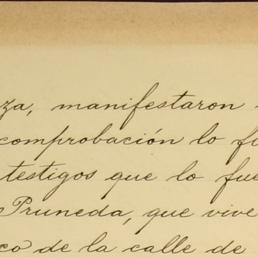 za, manifestaron
comprobación lo
testigos que lo fue
Pruneda, que vive
co de la calle de